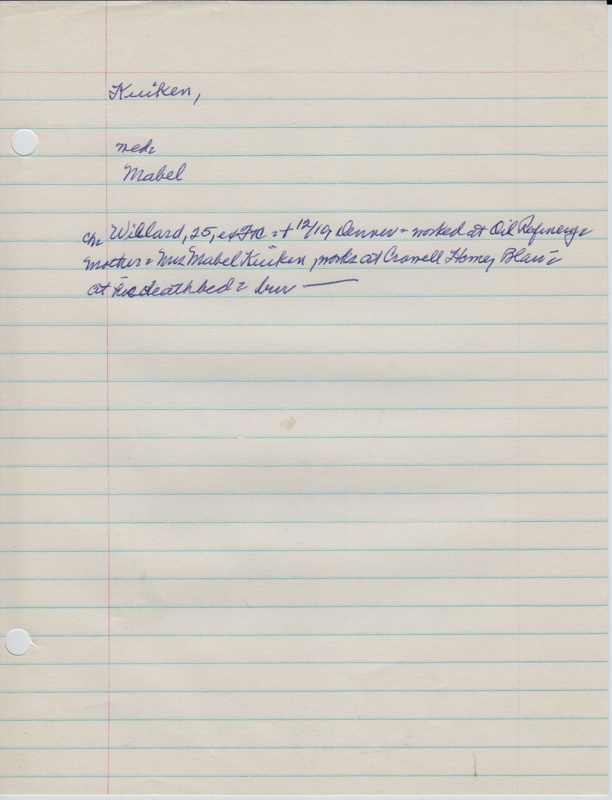 Kuiken,
med=
Mabel
ch Willard, 25, ex = + 12/19 Denver = worked at Oil Refinery =
mother = Mrs Mabel Kuiken, works at Crowell Home, Blair =
at his deathbed = bur —